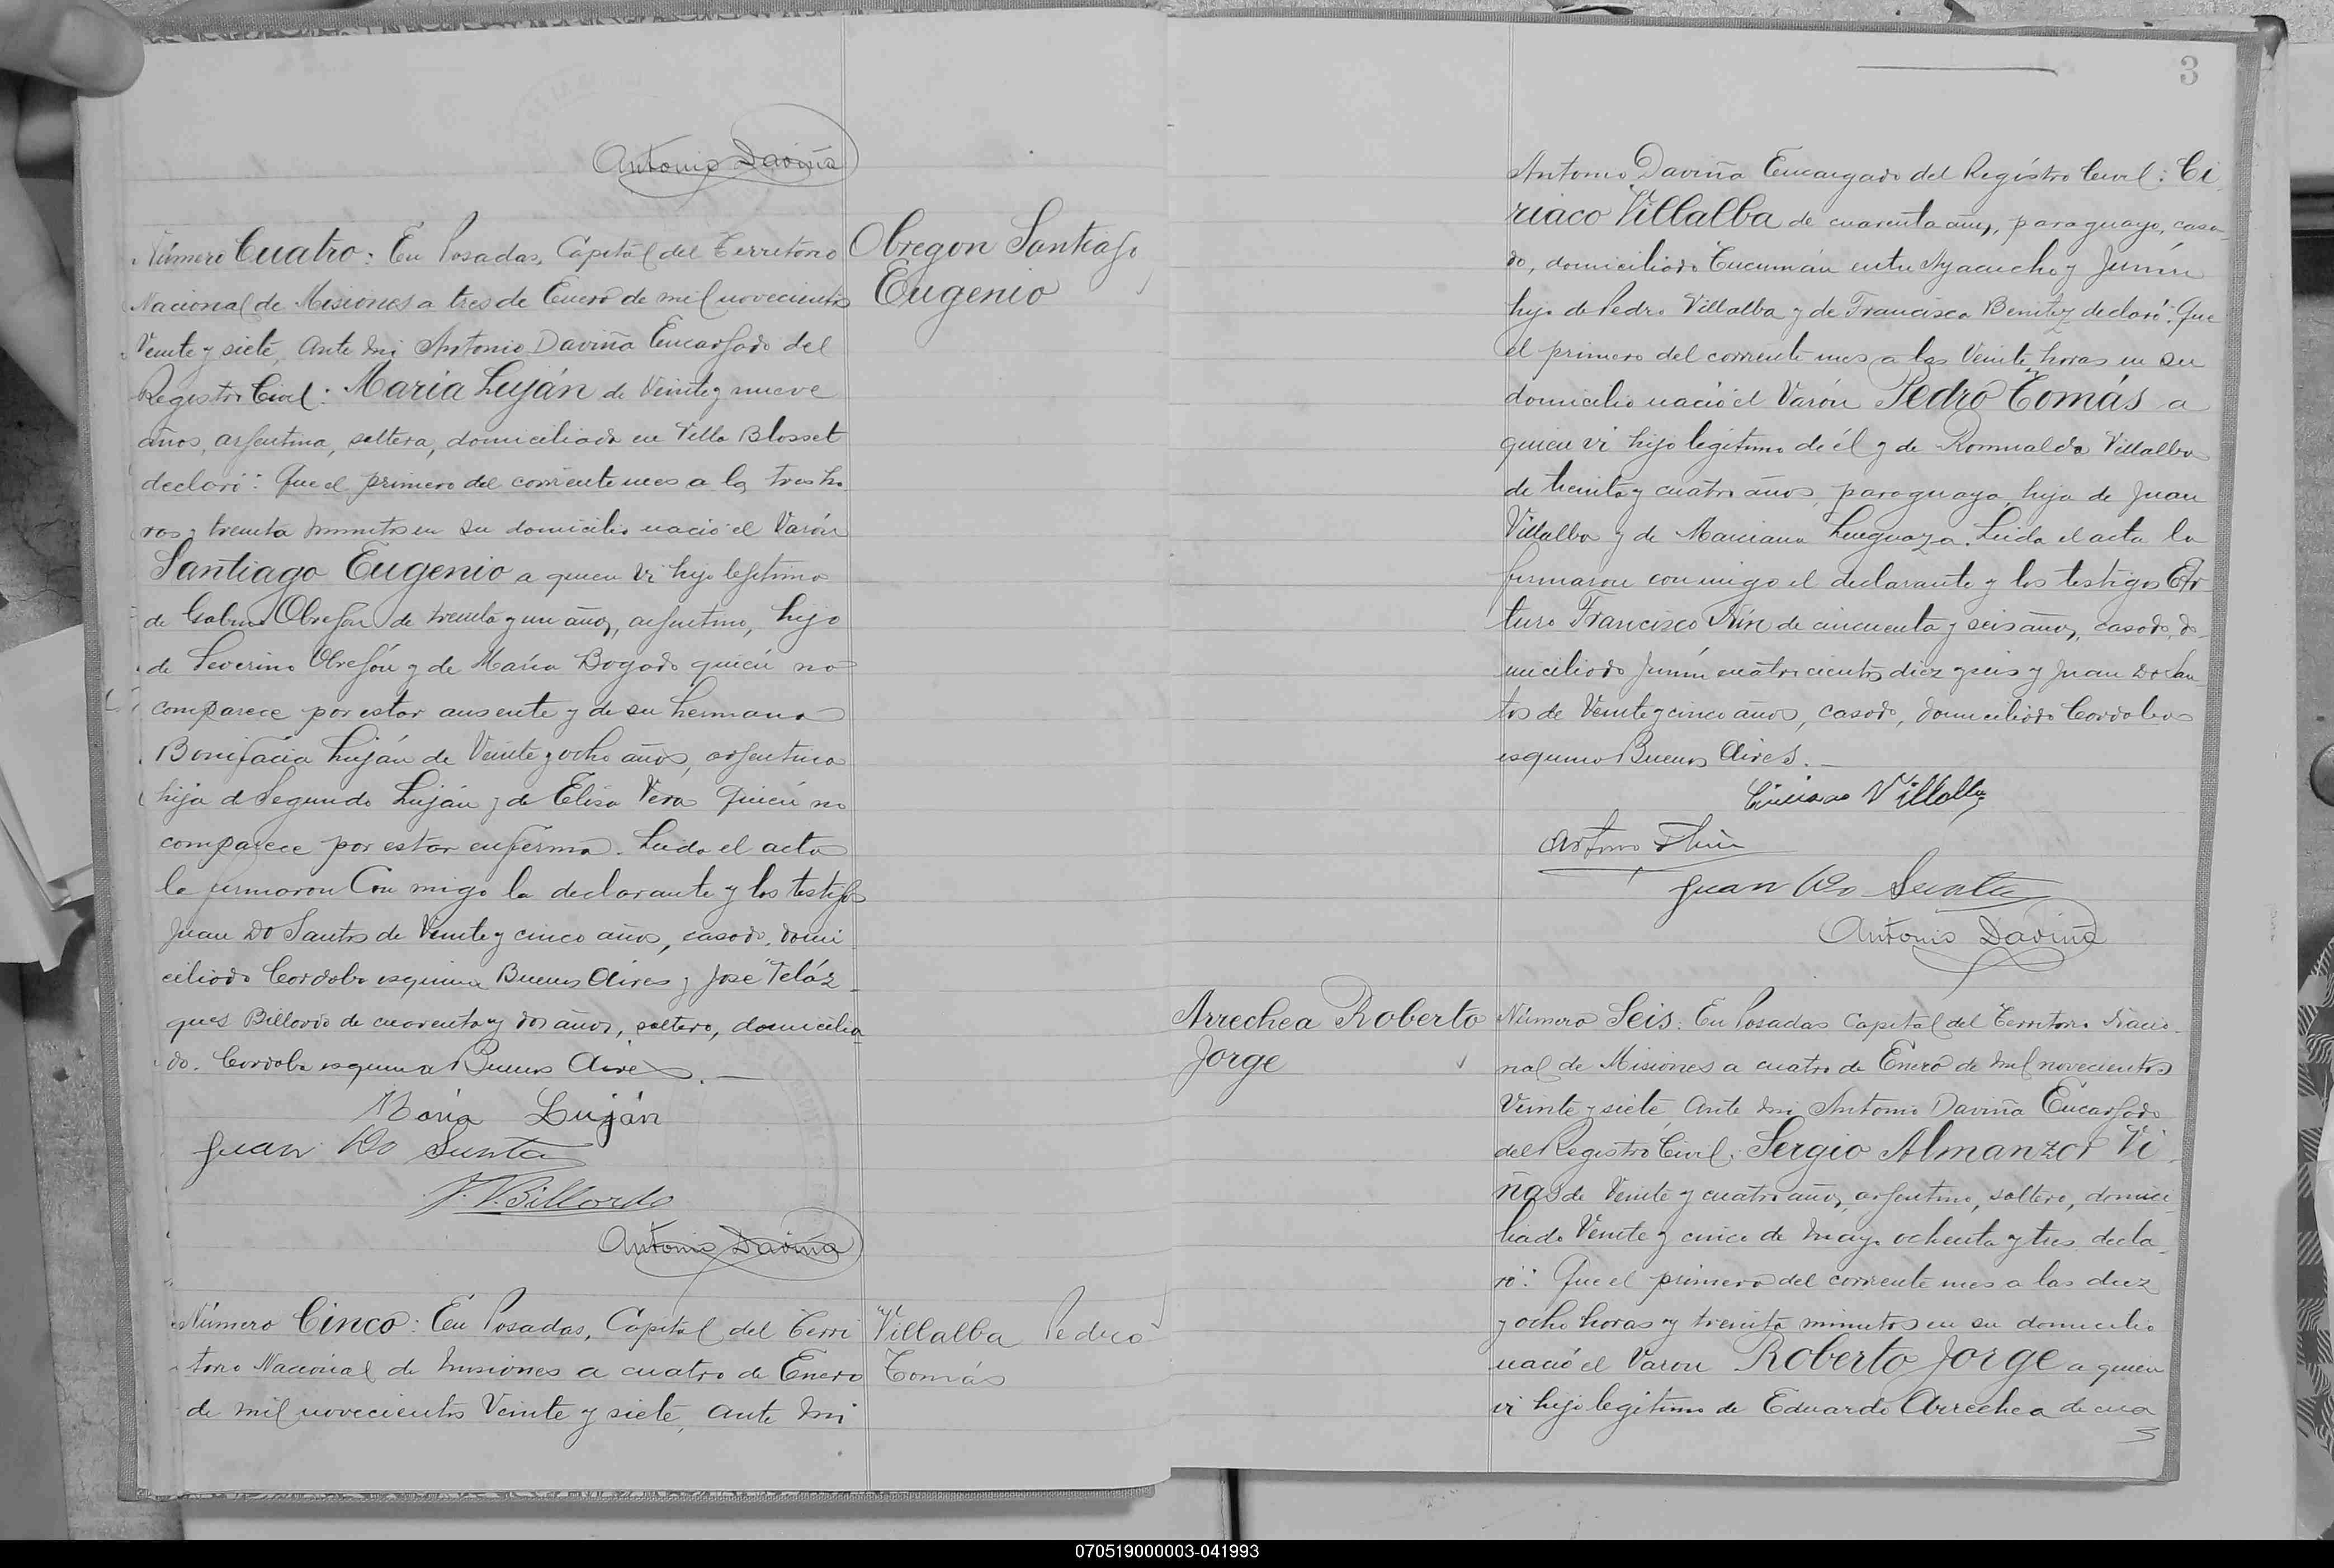 Antonio Daviña
Número Cuatro: En Posadas, Capital del Territorio
Nacional de Misiones a tres de Enero de mil novecientos
Veinte y siete, Ante mi Antonio Daviña Encargado del
Registro Civil: Maria Luján de Veinte y nueve
años, argentina, soltera, domiciliada en Villa Blosset
declaró: Que el primero del corriente mes a las tres ho
ras y treinta minutos en su domicilio nació el Varón
Santiago Eugenio a quien vi hijo legítimo
de Obregón de treinta y un años, argentino, hijo
de Severino Obregón y de María Bogado quién no
comparece por estar ausente y de su hermana
Bonifacia Luján de Veinte y ocho años, argentina
hija de Segundo Luján y de Elisa Vera quién no
comparece por estar enferma. Leida el acta
la firmaron Con migo la declarante y los testigos
Juan Do Santos de Veinte y cinco años, casado, domi
ciliado Cordoba esquina Buenos Aires y José Veláz
ques Billordo de cuarenta y dos años, soltero, domicilia
do. Cordoba esquina Buenos Aires. —
Maria Luján
Juan Do Santos
J. V. Billordo
Antonio Daviña
Número Cinco: En Posadas, Capital del Terri
torio Nacional de Misiones a cuatro de Enero
de mil novecientos Veinte y siete, Ante mi
Obregon Santiago
Eugenio
Villalba Pedro
Tomás
3
Antonio Daviña Encargado del Registro Civil: Ci
riaco Villalba de cuarenta años, paraguayo, casa
do, domiciliado Tucumán entre Ayacucho y Junín
hijo de Pedro Villalba y de Francisca Benitez declaró: Que
el primero del corriente mes a las Veinte horas en su
domicilio nació el Varón Pedro Tomás a
quien vi hijo legítimo de él y de Romualda Villalba
de treinta y cuatro años, paraguaya, hija de Juan
Villalba y de Marciana. Leida el acta la
firmaron conmigo el declarante y los testigos Ar
turo Francisco de cincuenta y seis años, casado, do
miciliado Junín cuatrocientos diez y seis y Juan Do San
tos de Veinte y cinco años, casado, domiciliado Cordoba
esquina Buenos Aires. —
Ciriaco Villalba
Arturo
Juan Do Santos
Antonio Daviña
Arrechea Roberto
Jorge
Número Seis: En Posadas Capital del Territorio Nacio
nal de Misiones a cuatro de Enero de mil novecientos
Veinte y siete, Ante mi Antonio Daviña Encargado
del Registro Civil: Sergio Almanzor Vi
ñas de Veinte y cuatro años, argentino, soltero, domici
liado Veinte y cinco de mayo ochenta y tres decla
ró: Que el primero del corriente mes a las diez
y ocho horas y treinta minutos en su domicilio
nació el Varon Roberto Jorge a quien
vi hijo legítimo de Eduardo Arrechea de cua
070519000003-041993